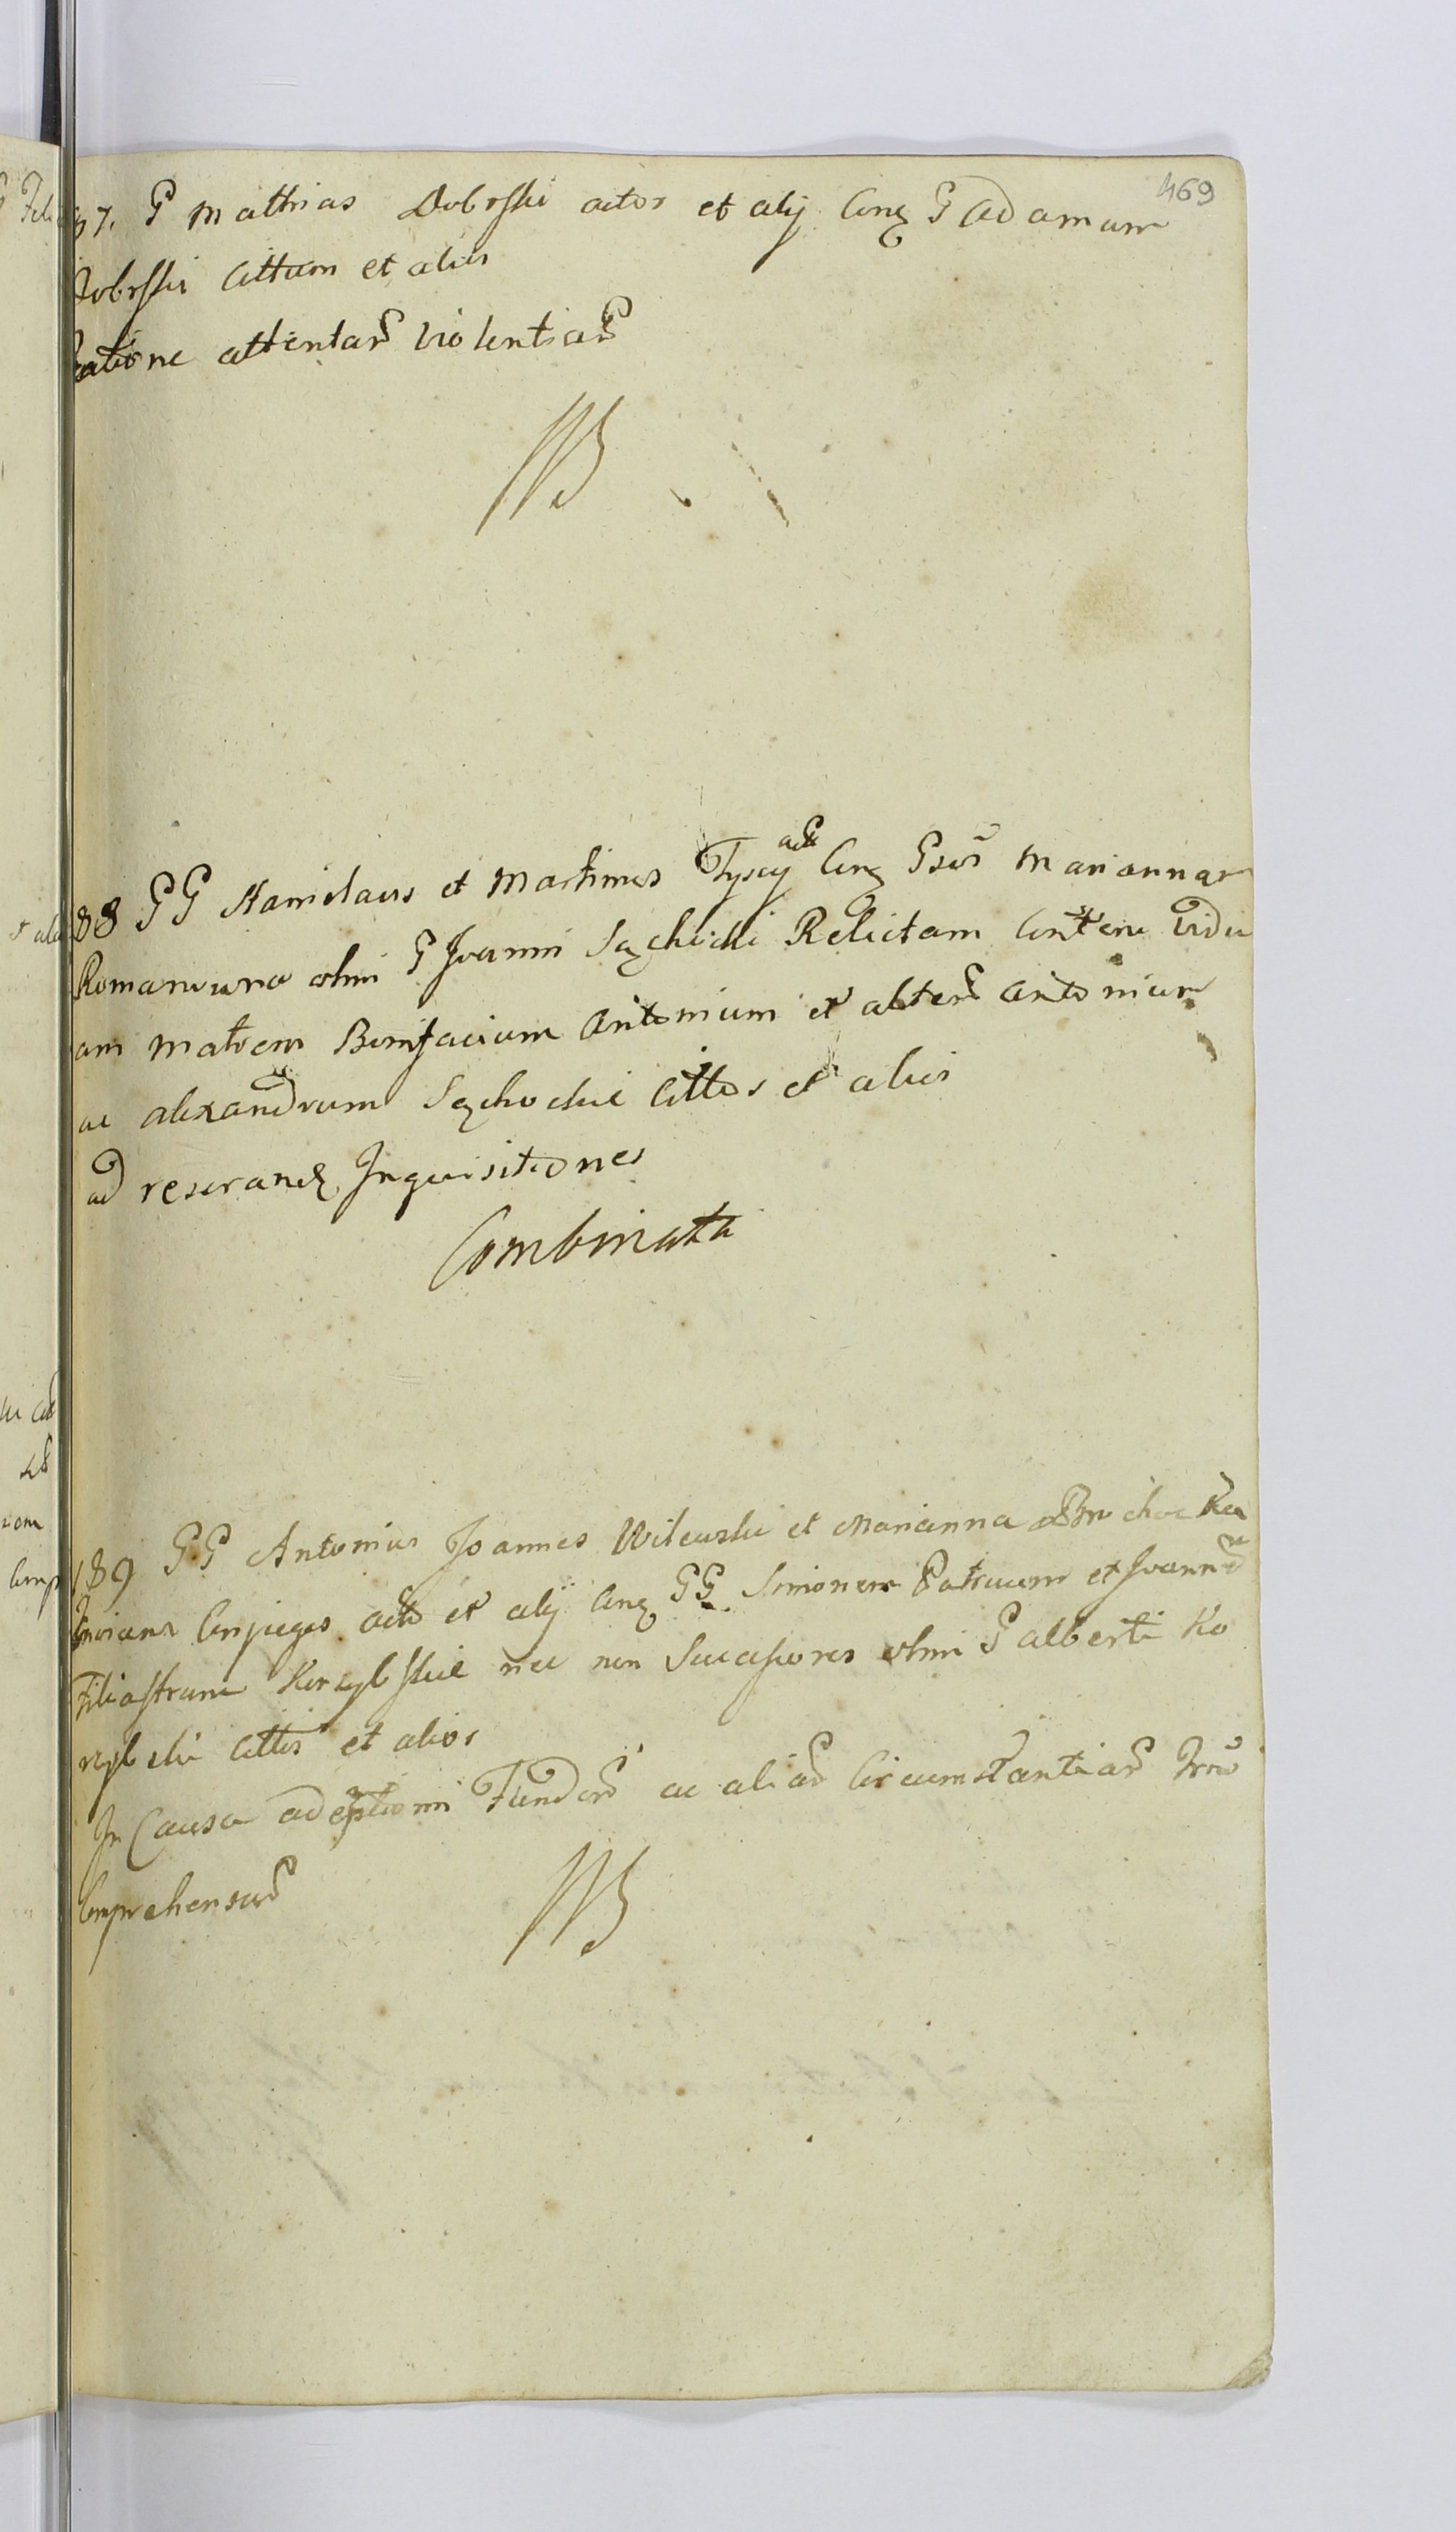 469
87. G Mathias Dobrski actor et alij Conq G Adamum
Dobrski Cittum et alios
Ratione attentar Violentiar
88 GG Stanislaus et Martinus Tyscy act Conq Gsos Mariannam
olim G Joanni Sachocki Relictam Vidu
am Matrem Bonifacium Antonium et alter Antonium
ac Alexandrum Sachockie Cittos et alios
ad reserand Inquisitiones
Combinata
189 GG Antonius Joannes Wilewski et Marianna
Conjuges act et alij Conq GG Simonem Patruum et Joann
Filiastrum Korzybskie nec non Successores olim G Alberti Ko
rzybski Cittos et alios
In Causa ademptionis Fundor ac aliar Circumstantiar
Comprehensar